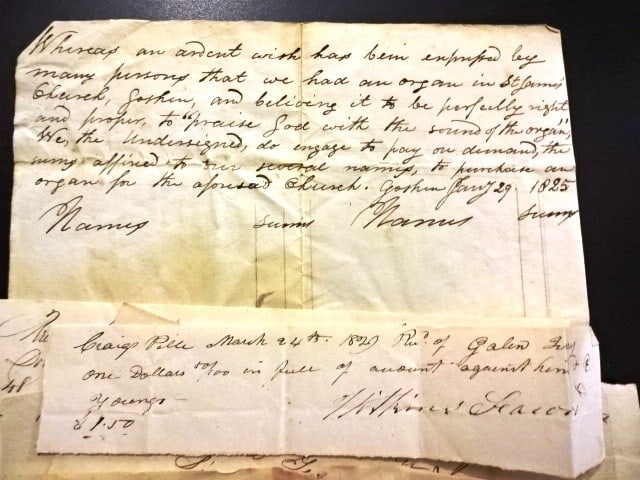 Whereas an ardent wish has been expressed by
many persons that we had an organ in St James'
Church, Goshen, and believing it to be perfectly right
and proper, to "praise God with the sound of the organ,"
We, the Undersigned, do engage to pay on demand, the
sums affixed to our several names, to purchase an
organ for the aforesaid Church. Goshen Jany 29. 1825
Names sums Names sums
Craigs Ville March 24th. 1829 Rec'd of Galen
one Dollars 50/00 in full of account against him
Youngs
$1.50
48